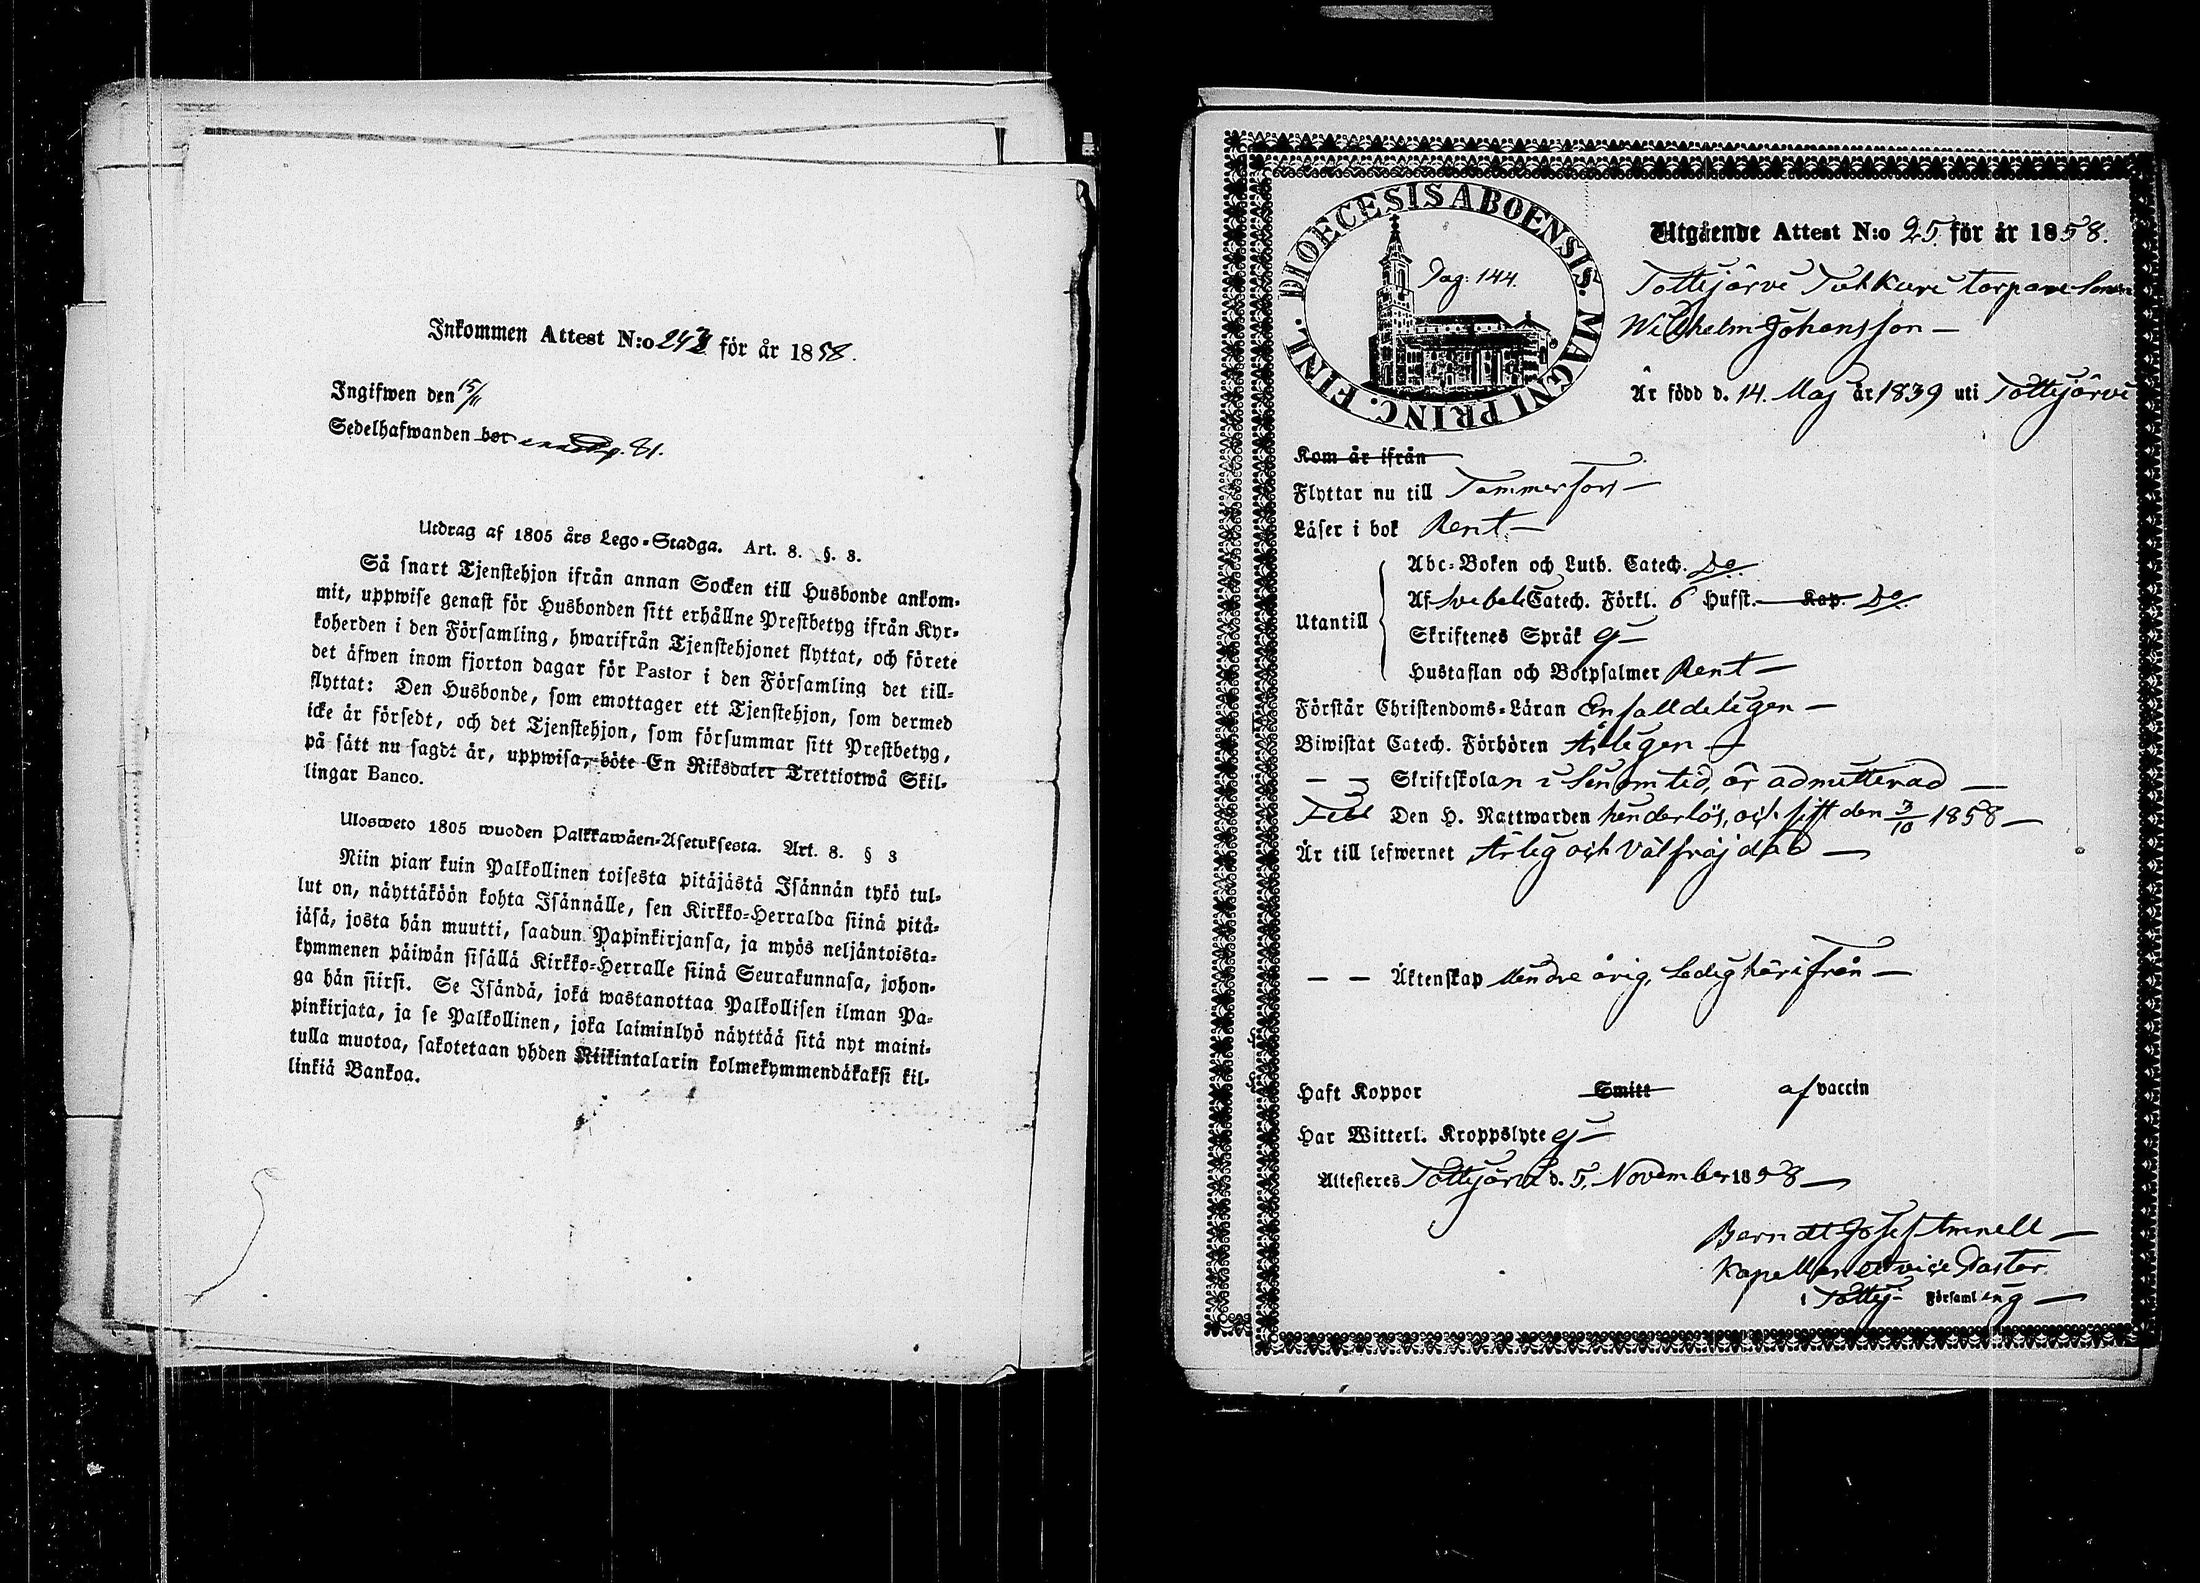 Inkommen Attest N:o 243 för år 1858.
Ingifwen den 15/11
Sedelhafwanden bor pg. 81.
Utdrag af 1805 års Lego-Stadga. Art. 8. §. 3.
Så snart Tjenstehjon ifrån annan Socken till Husbonde ankom-
mit, uppwise genast för Husbonden sitt erhållne Prestbetyg ifrån Kyr-
koherden i den Församling, hwarifrån Tjenstehjonet flyttat, och förete
det äfwen inom fjorton dagar för Pastor i den Församling det till-
flyttat: Den Husbonde, som emottager ett Tjenstehjon, som dermed
icke är försedt, och det Tjenstehjon, som försummar sitt Prestbetyg,
på sätt nu sagdt är, uppwisa, böte En Riksdaler Trettiotwå Skil-
lingar Banco.
Ulosweto 1805 wuoden Palkkawäen-Asetuksesta. Art. 8. § 3
Niin pian kuin Palkollinen toisesta pitäjästä Isännän tykö tul-
lut on, näyttäköön kohta Isännälle, sen Kirkko-Herralda siinä pitä-
jäsä, josta hän muutti, saadun Papinkirjansa, ja myös neljäntoista-
kymmenen päiwän sisällä Kirkko-Herralle siinä Seurakunnasa, johon-
ga hän siirsi. Se Isändä, joka wastanottaa Palkollisen ilman Pa-
pinkirjata, ja se Palkollinen, joka laiminlyö näyttää sitä nyt maini-
tulla muotoa, sakotetaan yhden Riikintalarin kolmekymmendäkaksi kil-
linkiä Bankoa.
DIOECESIS ABOENSIS. MAGNI PRINC. FINL.
Pag: 144.
Utgående Attest N:o 25. för år 1858.
Tottijärvi Tuhkuri torpare Sonen
Wilhelm Johansson —
Är född d. 14. Maj år 1839 uti Tottijärvi
Kom år ifrån
Flyttar nu till Tammerfors —
Läser i bok Rent —
Utantill
Abc-Boken och Luth. Catech. Do.
Af Svebeli Catech. Förkl. 6 Hufst. Kap. Do.
Skriftenes Språk Ej —
Hustaflan och Botpsalmer Rent —
Förstår Christendoms-Läran Enfalldeligen —
Biwistat Catech. Förhören Årligen —
— — Skriftskolan i sinom tid, är admitterad —
Till Den H. Nattwarden hinderlös, och sist den 3/10 1858 —
Är till lefwernet Ärlig och Välfräjdad —
— — Äktenskap Mindre årig, Ledig härifrån —
Haft Koppor Smitt af vaccin
Har Witterl. Kroppslyte Ej —
Attesteres Tottijärvi d. 5. November 1858 —
Berndt Josef Amnell —
Kapellan och vice Pastor
i Tottij- Församling —